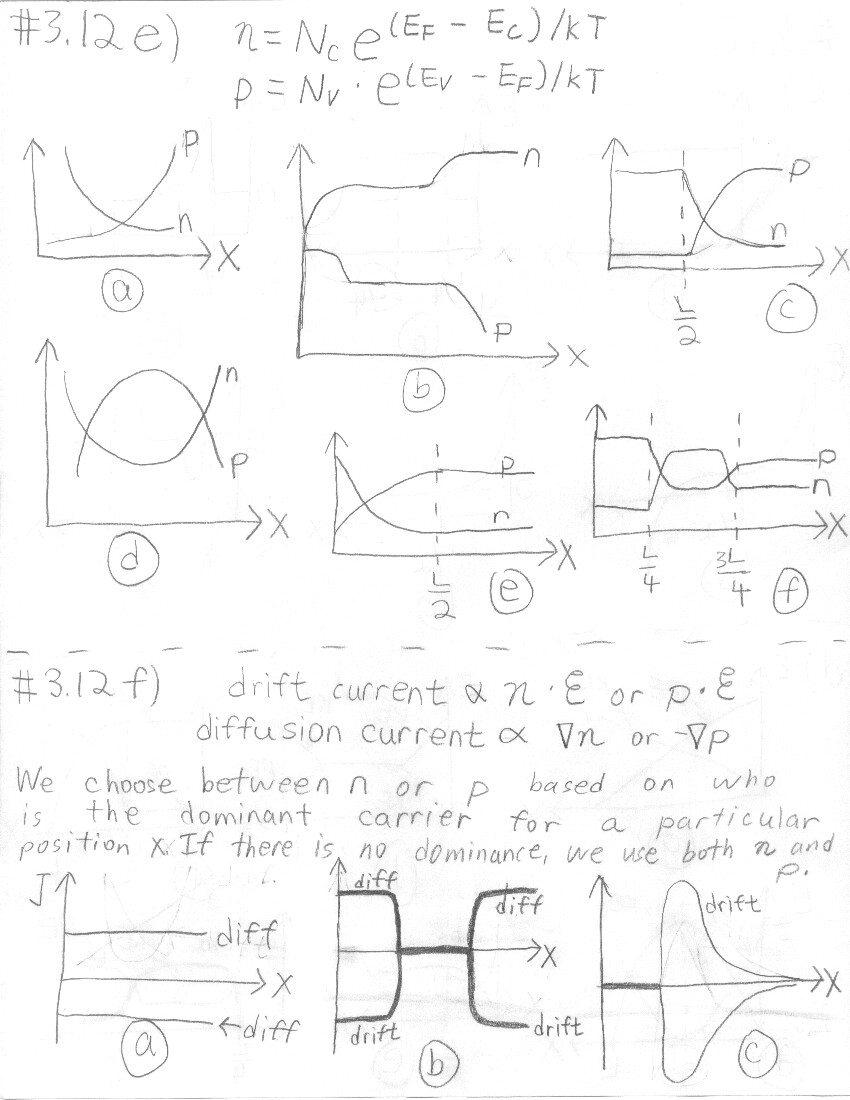 #3.12e) n = N_C e^(E_F − E_C)/kT
p = N_V · e^(E_V − E_F)/kT
p
n
X
a
n
p
X
b
p
n
X
L/2
c
n
p
X
d
p
n
X
L/2
e
p
n
X
L/4
3L/4
f
#3.12f) drift current ∝ n · ℰ or p · ℰ
diffusion current ∝ ∇n or -∇p
We choose between n or p based on who
is the dominant carrier for a particular
position x. If there is no dominance, we use both n and
p.
J
diff
X
←diff
a
diff
diff
X
drift
drift
b
drift
X
c